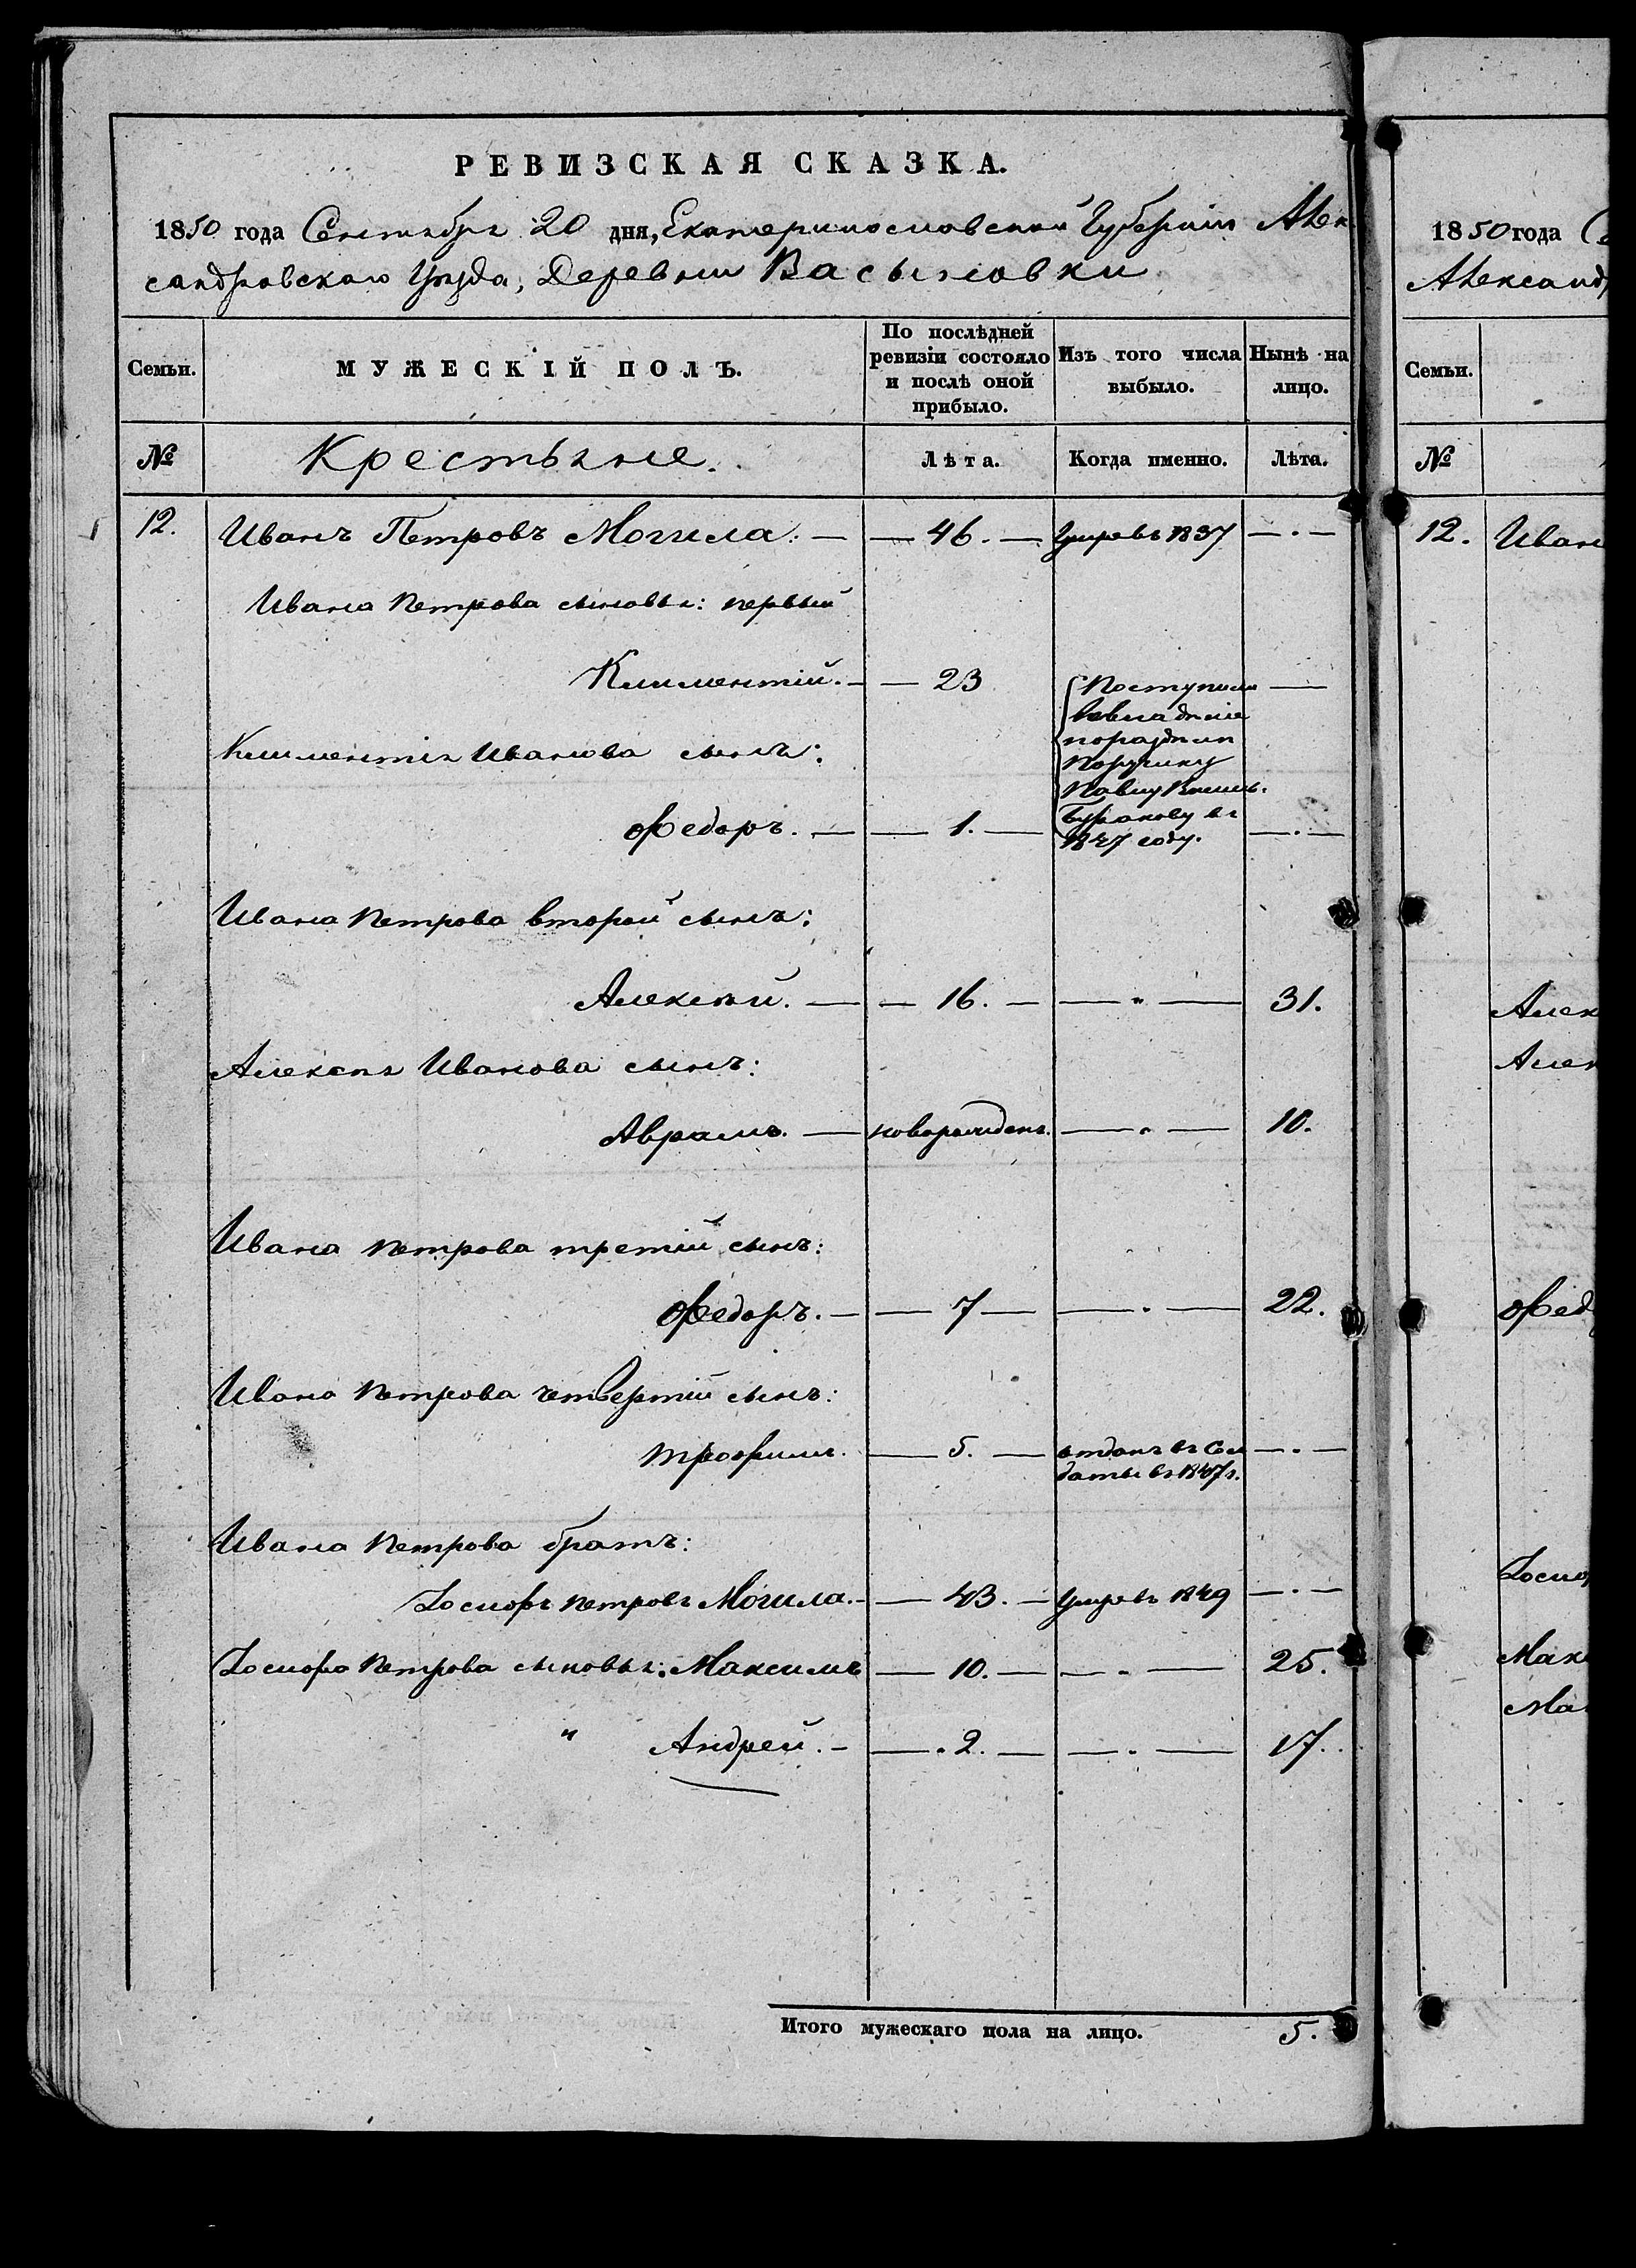 РЕВИЗСКАЯ СКАЗКА.
1850 года Сентября 20 дня, Екатеринославской Губерніи Алек
сандровскаго Уѣзда, Деревни Васыловки
Семьи.
МУЖЕСКІЙ ПОЛЪ.
По послѣдней
ревизіи состояло
и послѣ оной
прибыло.
Изъ того числа
выбыло.
Нынѣ на
лицо.
№
Крестьяне.
Лѣта.
Когда именно.
Лѣта.
12. Иванъ Петровъ Могила. — — 46. — Умре въ 1837 — . —
Ивана Петрова сыновья: первый
Климентій. — — 23 —
Поступили
во владѣніе
по раздѣлу
Поручику
Павлу
въ
1847 году.
Климентія Иванова сынъ:
Ѳедоръ. — — 1. — — . —
Ивана Петрова второй сынъ:
Алексѣй. — — 16. — — " — 31.
Алексѣя Иванова сынъ:
Аврамъ. — новорожденъ. — . — 10.
Ивана Петрова третій сынъ:
Ѳедоръ. — — 7 — — . — 22.
Ивана Петрова четвертій сынъ:
Трофимъ. — 5. — отданъ въ Сол — . —
даты въ 1847 г.
Ивана Петрова братъ:
Іосифъ Петровъ Могила. — — 43. — Умре въ 1849 — . —
Іосифа Петрова сыновья: Максимъ — 10. — — . — 25.
" Андрей. — — . 2. — — . — 17.
Итого мужескаго пола на лицо. 5.
1850 года Се
Александ
Семьи.
№
12. Иван
Алек
Алек
Ѳед
Іосиф
Мак
Ма